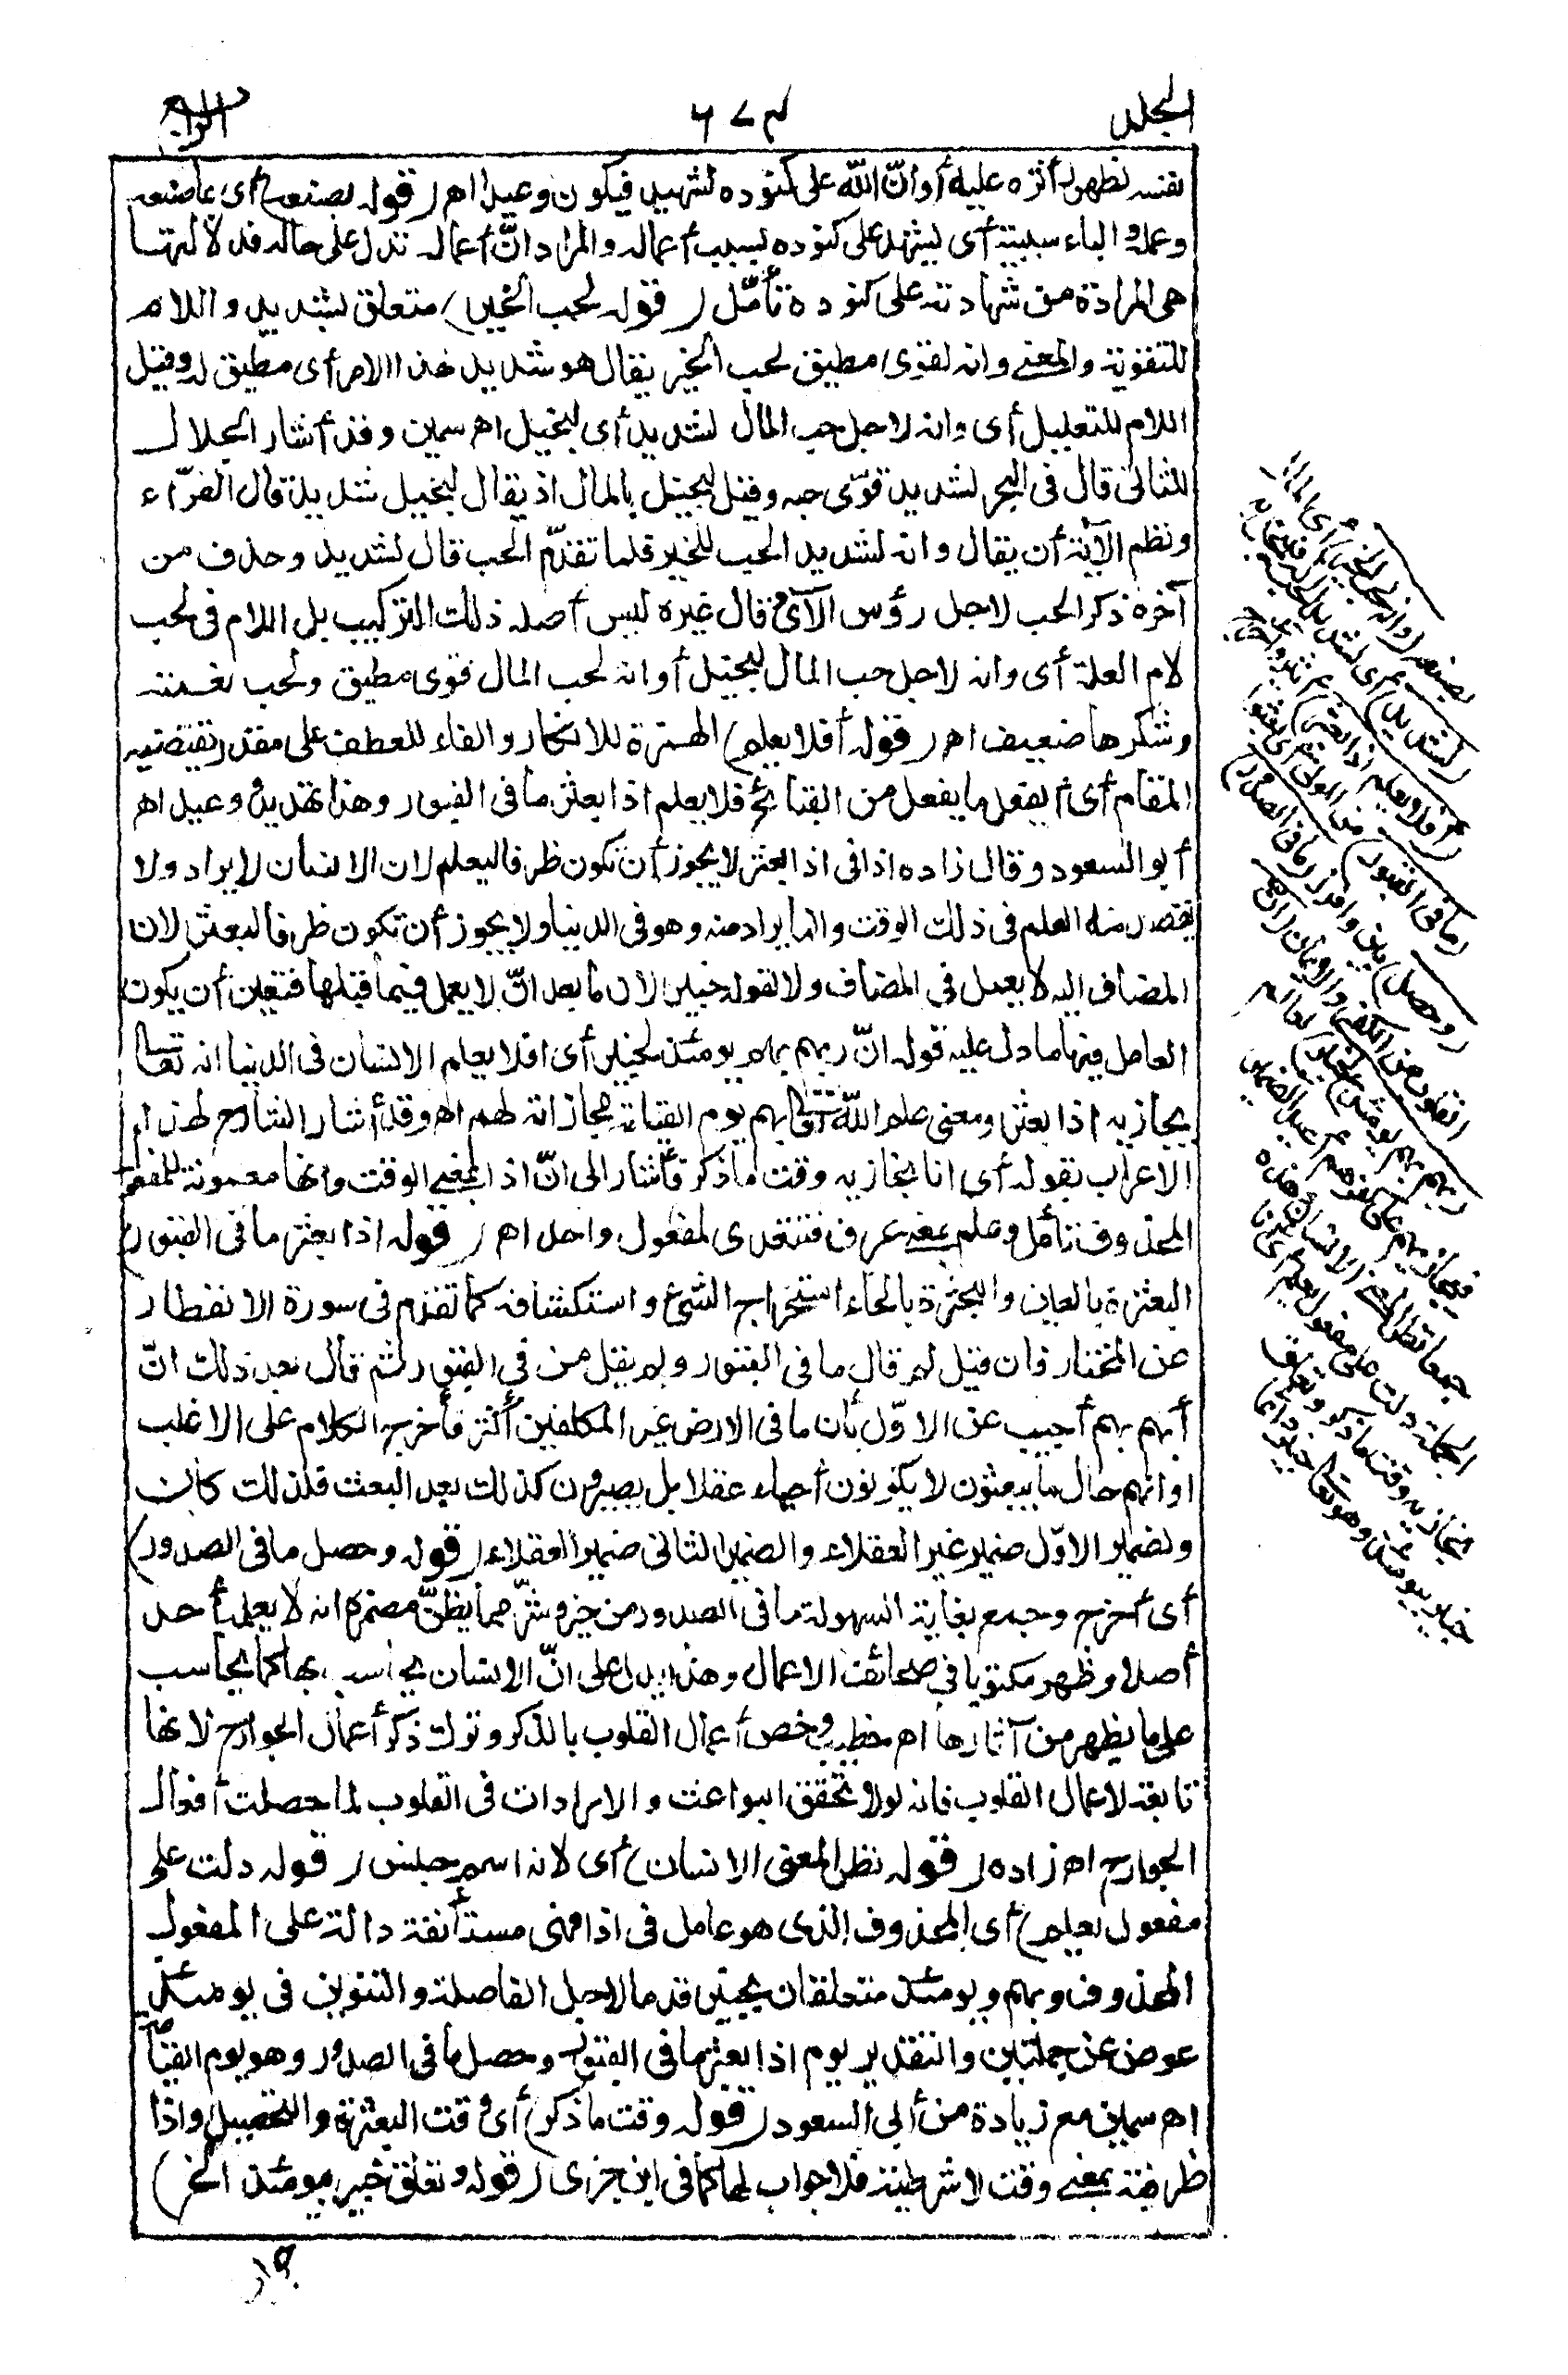 المجلد
٦٧٤
الرابع
بنفسه لظهور أثره عليه أو انّ اللّه على كنوده لشهيد فيكون وعيدا اهـ (قوله بصنعه) أى بما صنعه
وعمله والباء سببية أى يشهد على كنوده بسبب أعماله والمراد انّ أعماله تدل على حاله فدلالتها
هى المرادة من شهادته على كنوده تأمّل (قوله لحب الخير) متعلق بشديد واللام
للتقوية والمعنى وانه لقوى مطيق لحب الخير يقال هو شديد لهذا الامر أى مطيق له وقيل
اللام للتعليل أى وانه لاجل حب المال لشديد أى لبخيل اهـ سمين وقد أشار الجلال
للثانى قال فى البحر لشديد قوّى حبه وقيل لبخيل بالمال اذ يقال لبخيل شديد قال الفرّاء
ونظم الآية أن يقال وانه لشديد الحب للخير فلما تقدّم الحب قال لشديد وحذف من
آخره ذكر الحب لاجل رؤس الآى وقال غيره ليس أصله ذلك التركيب بل اللام فى لحب
لام العلة أى وانه لاجل حب المال لبخيل أو انه لحب المال قوى مطيق ولحب نعمته
وشكرها ضعيف اهـ (قوله أفلا يعلم) الهمزة للانكار والفاء للعطف على مقدر يقتضيه
المقام أى أيفعل ما يفعل من القبائح فلا يعلم اذا بعثر ما فى القبور وهذا تهديد ووعيد اهـ
أبو السعود وقال زاده اذا فى اذا بعثر لا يجوز أن تكون ظرفا ليعلم لان الانسان لا يراد ولا
يقصد منه العلم فى ذلك الوقت وانما يراد منه وهو فى الدنيا ولا يجوز أن تكون ظرفا لبعثر لان
المضاف اليه لا يعمل فى المضاف ولا لقوله خبير لان ما بعد انّ لا يعمل فيما قبلها فتعين أن يكون
العامل فيها ما دل عليه قوله انّ ربهم بهم يومئذ لخبير أى افلا يعلم الانسان فى الدنيا انه تعالى
يجازيه اذا بعثر ومعنى علم اللّه تعالى بهم يوم القيامة مجازاته لهم اهـ وقد أشار الشارح لهذا
الاعراب بقوله أى انا نجازيه وقت ما ذكر فأشار الى انّ اذا بمعنى الوقت وانها معمولة للمفعول
المحذوف تأمل وعلم بمعنى عرف فتتعدى لمفعول واحد اهـ (قوله اذا بعثر ما فى القبور)
البعثرة بالعين والبحثرة بالحاء استخراج الشئ واستكشافه كما تقدم فى سورة الانفطار
عن المختار فان قيل لم قال ما فى القبور ولم يقل من فى القبور ثم قال بعد ذلك انّ
ربهم بهم أجيب عن الاوّل بأن ما فى الارض غير المكلفين أكثر فأخرج الكلام على الاغلب
او انهم حال ما يبعثون لا يكونون أحياء عقلا بل يصيرون كذلك بعد البعث فلذلك كان
الضمير الاوّل ضمير غير العقلاء والضمير الثانى ضمير العقلاء (قوله وحصل ما فى الصدور)
أى أخرج وجمع بغاية السهولة ما فى الصدور من خير وشرّ مما يظنّ مضمره انه لا يعلمه أحد
أصلا وظهر مكتوبا فى صحائف الاعمال وهذا يدل على انّ الانسان يحاسب بها كما يحاسب
على ما يظهر من آثارها اهـ خطيب وخص أعمال القلوب بالذكر وترك ذكر أعمال الجوارح لانها
تابعة لاعمال القلوب فانه لولا تحقق البواعث والارادات فى القلوب لما حصلت أفعال
الجوارح اهـ زاده (قوله نظر المعنى الانسان) أى لانه اسم جنس (قوله دلت على
مفعول يعلم) أى المحذوف الذى هو عامل فى اذا فهى مستأنفة دالة على المفعول
المحذوف وبهم ويومئذ متعلقان بخبير قدما لاجل الفاصلة والتنوين فى يومئذ
عوض عن جملتين والتقدير يوم اذا بعثر ما فى القبور وحصل ما فى الصدور وهو يوم القيامة
اهـ سمين مع زيادة من أبى السعود (قوله وقت ما ذكر) أى وقت البعثرة والتحصيل واذا
ظرفية بمعنى وقت لا شرطية فلا جواب لها كما فى ابن جزى (قوله وتعلق خبير بيومئذ الخ)
بصنعه (وانه لحب الخير) أى المال
(لشديد)
(أفلا يعلم اذا بعثر)
(ما فى القبور) من الموتى أى بعثوا
(وحصل) بين وافرز (ما فى الصدور)
القلوب من الكفر والايمان (ان
ربهم بهم يومئذ لخبير) لعالم
فيجازيهم على كفرهم أعيد الضمير
جمعا نظرا لمعنى الانسان وهذه
الجملة دلت على مفعول يعلم أى انا
نجازيه وقت ما ذكر وتعلق
خبير بيومئذ وهو تعالى خبير دائما